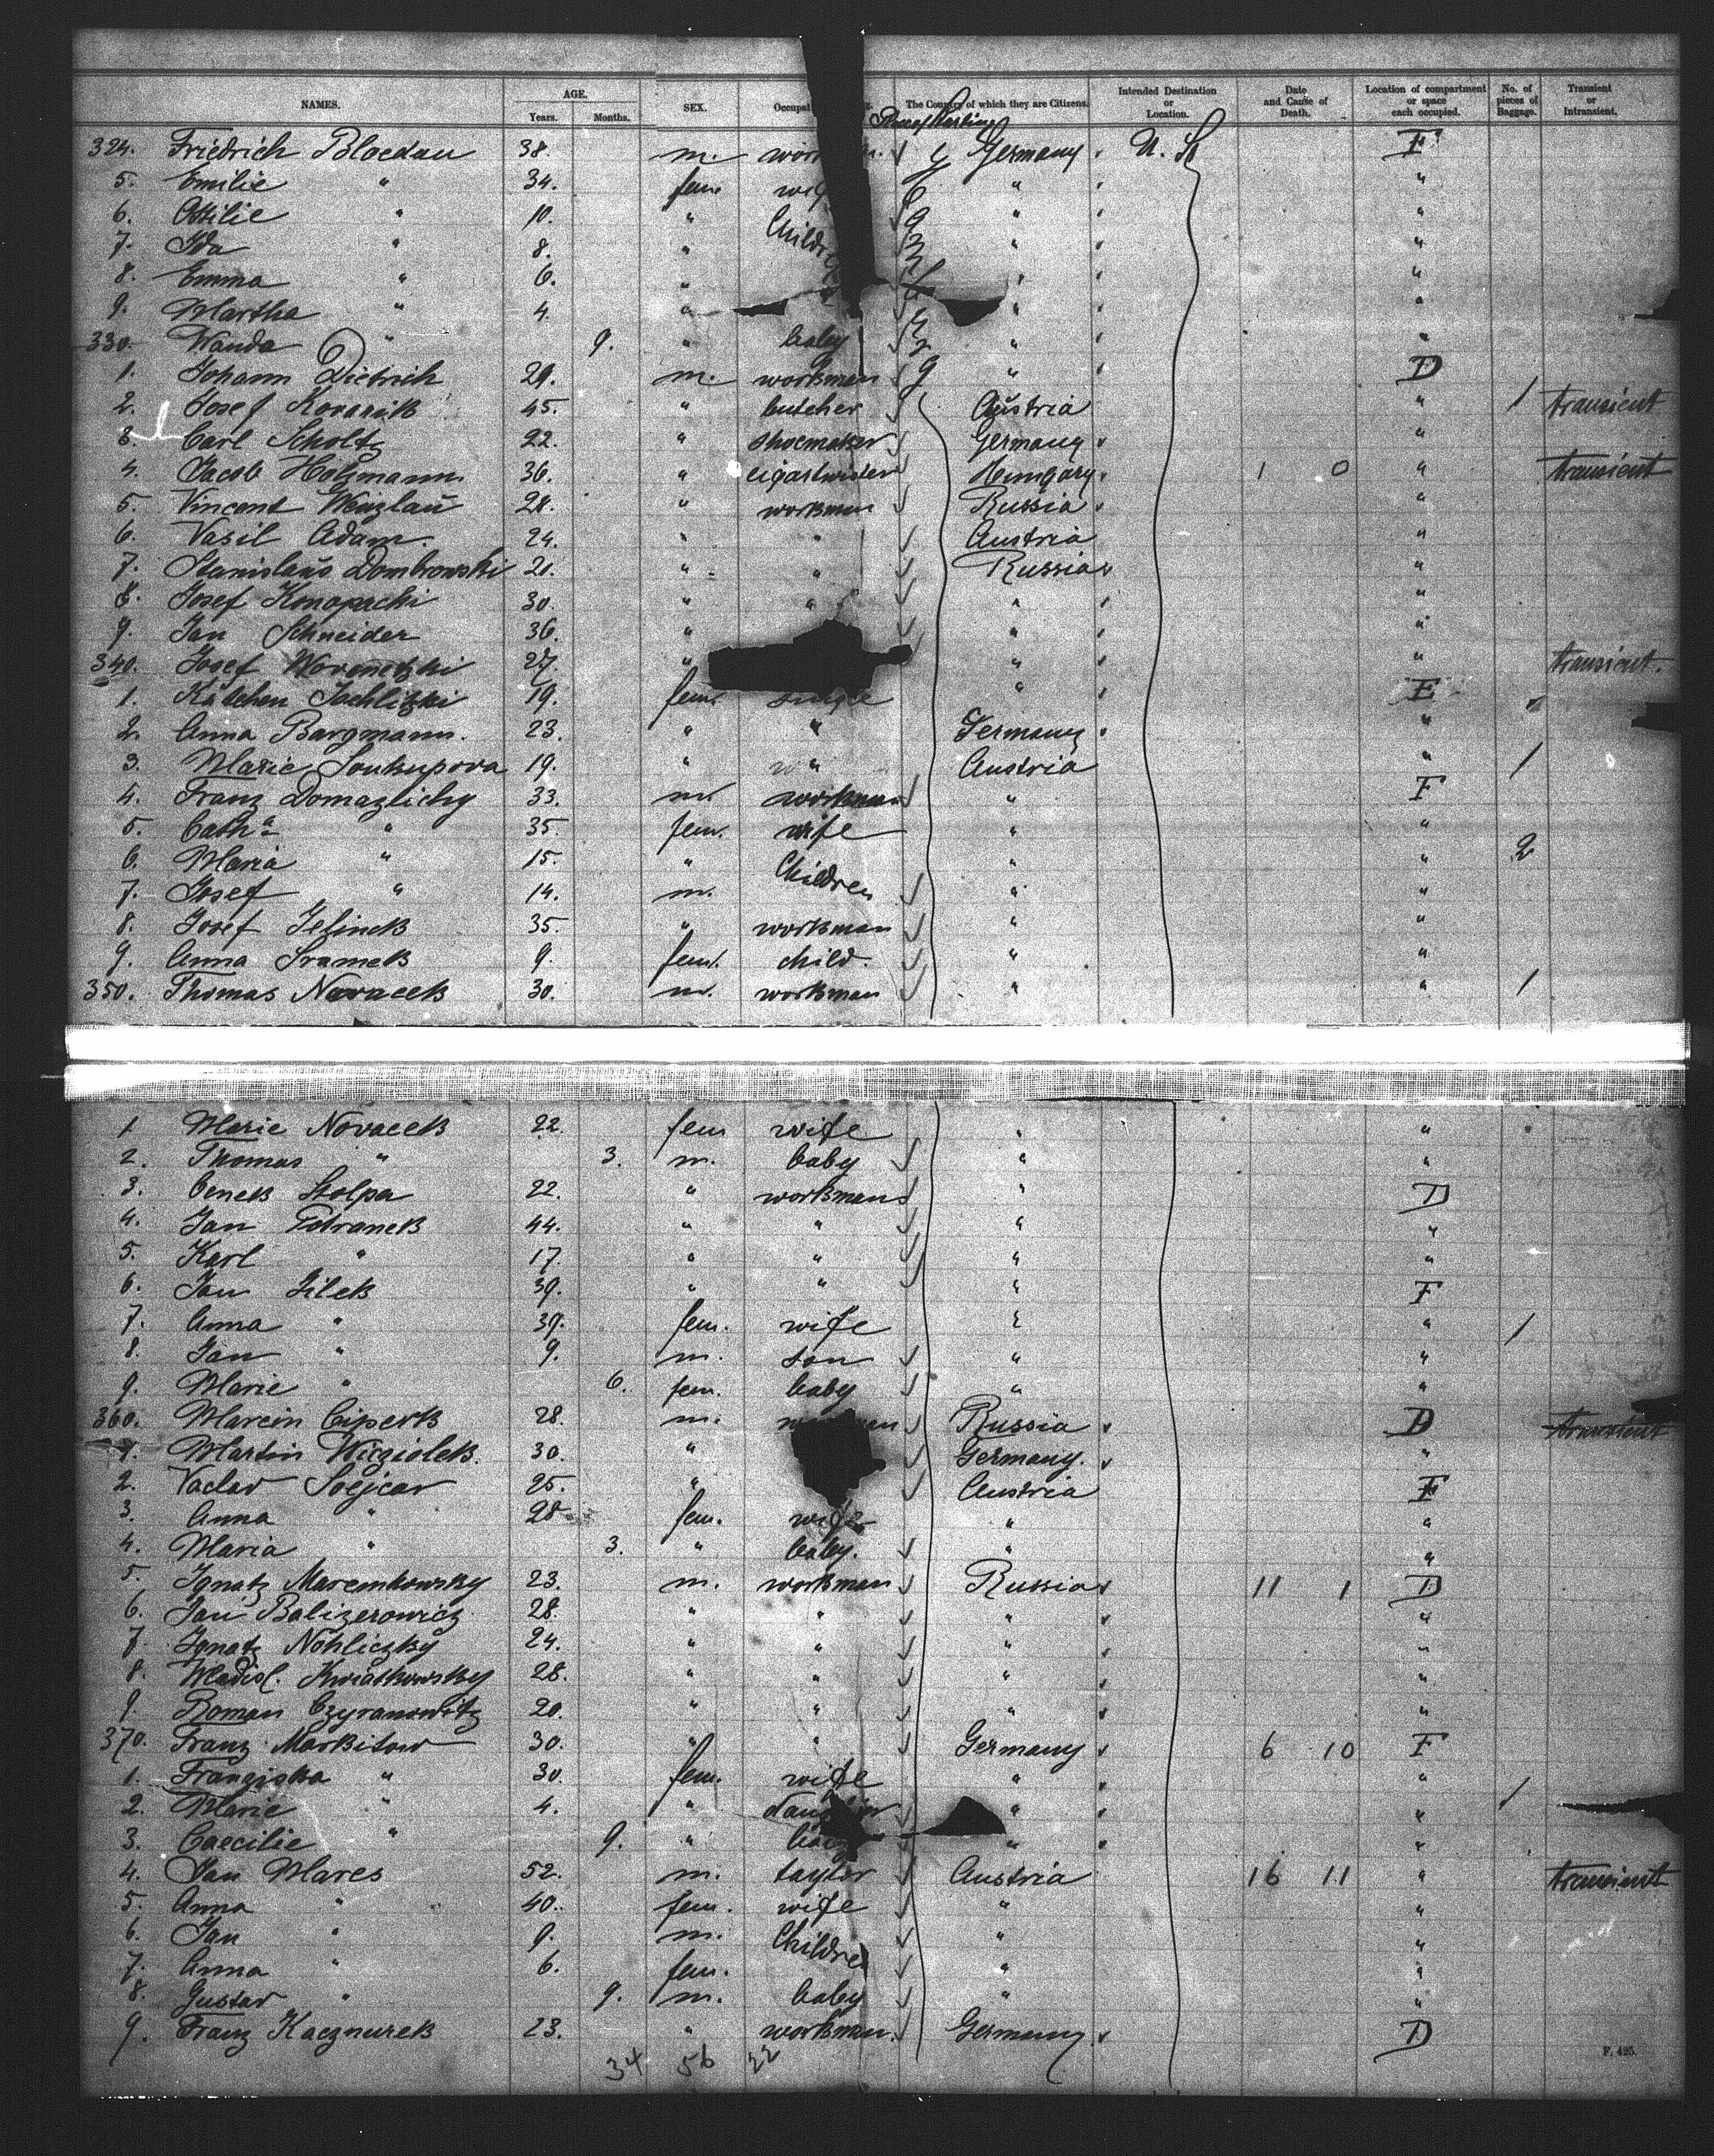 NAMES. AGE. Years. Months. SEX. Occupat The Country of which they are Citizens. Intended Destination or Location. Date and Cause of Death. Location of compartment or space each occupied. No. of pieces of Baggage. Transient or Intransient.
324. Friedrich Bloedau 38. m. Germany U. S. F
5. Emilie " 34. fem. wif " "
6. Ottilie " 10. " Childre " "
7. Ida " 8. " " "
8. Emma " 6. " " "
9. Martha " 4. " " "
330. Wanda " 9. " baby " "
1. Johann Dietrich 29. m. workman " D
2. Josef Kovarik 45. " butcher Austria " 1 transient
3. Carl Scholtz 22. " shoemaker Germany "
4. Jacob Holzmann 36. " cigartwister Hungary 1 0 " transient
5. Vincent Wenzlaŭ 28. " workman Russia "
6. Vasil Adam. 24. " " Austria "
7. Stanislaŭs Dombrowski 21. " " Russia "
8. Josef Konopachi 30. " " " "
9. Jan Schneider 36. " " "
340. Josef 27. " " " transient.
1. Kätchen 19. fem. single " E
2. Anna Bargmann. 23. " " Germany "
3. Marie Soukupova 19. " " Austria " 1
4. Franz Domazlichy 33. m. workman " F
5. Catha " 35. fem. wife " "
6. Maria " 15. " Children " " 2
7. Josef " 14. m. " "
8. Josef Jelinek 35. " workman " "
9. Anna Sramek 9. fem. child. " "
350. Thomas Novacek 30. m. workman " " 1
1 Marie Novacek 22. fem wife " "
2. Thomas " 3. m. baby " "
3. Cenek Stolpa 22. " workman " D
4. Jan 44. " " " "
5. Karl " 17. " " " "
6. Jan Filek 39. " " " F
7. Anna " 39. fem. wife " " 1
8. Jan " 9. m. son " "
9. Marie " 6. fem. baby " "
360. Marcin Ciperk 28. m. Russia D transient
1. Martin Wicziolek. 30. " Germany. "
2. Vaclav Svejcar 25. " Austria F
3. Anna " 28 fem. wife " "
4. Maria " 3. " baby. " "
5. Ignatz Maremkowsky 23. m. workman Russia 11 1 D
6. Jan Balizerowicz 28. " " " "
7. Ignatz Nohliczky 24. " " " "
8. Wladisl. Kwiatkowsky 28. " " " "
9. Roman Czyranowitz 20. " " " "
370. Franz Markitow 30. " " Germany 6 10 F
1. Franziska " 30. fem. wife " " 1
2. Marie " 4. " " "
3. Caecilie " 9. " " "
4. Jan Mares 52. m. taylor Austria 16 11 " transient
5. Anna " 40. fem. wife " "
6. Jan " 9. m. Children " "
7. Anna " 6. fem. " "
8. Gustav " 9. m. baby " "
9. Franz Kaczmurek 23. " workman. Germany D
34 56 22
F. 425.